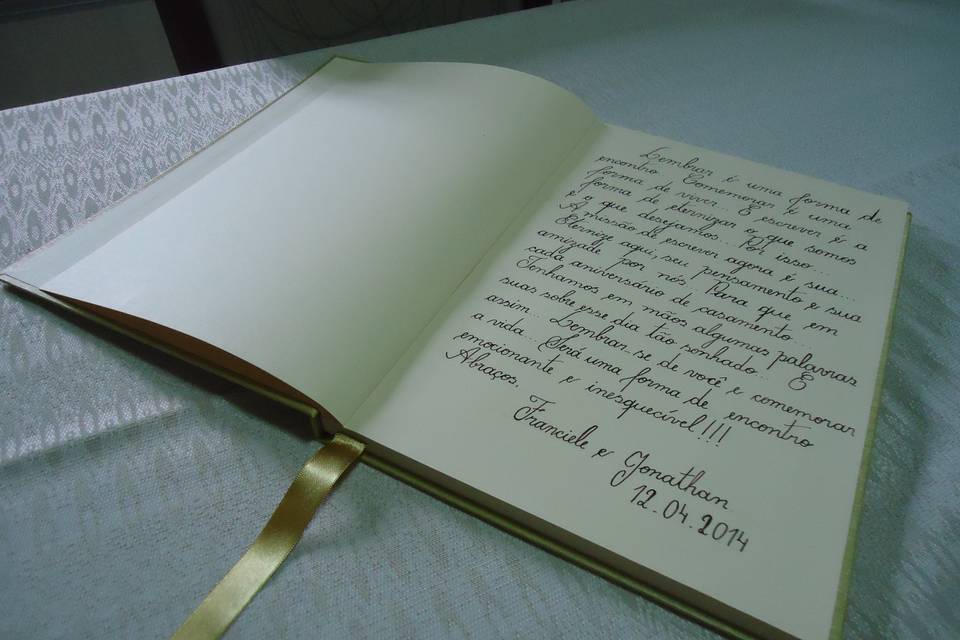 Lembrar é uma forma de
encontro. Comemorar é uma
forma de viver... E escrever é a
forma de eternizar o que somos
e o que desejamos... Por isso...
A missão de escrever agora é sua...
Eternize aqui, seu pensamento e sua
amizade por nós. Para que em
cada aniversário de casamento...
Tenhamos em mãos algumas palavras
suas sobre esse dia tão sonhado... E
assim... Lembrar-se de você e comemorar
a vida... Será uma forma de encontro
emocionante e inesquecível!!!
Abraços,
Franciele e Jonathan
12.04.2014